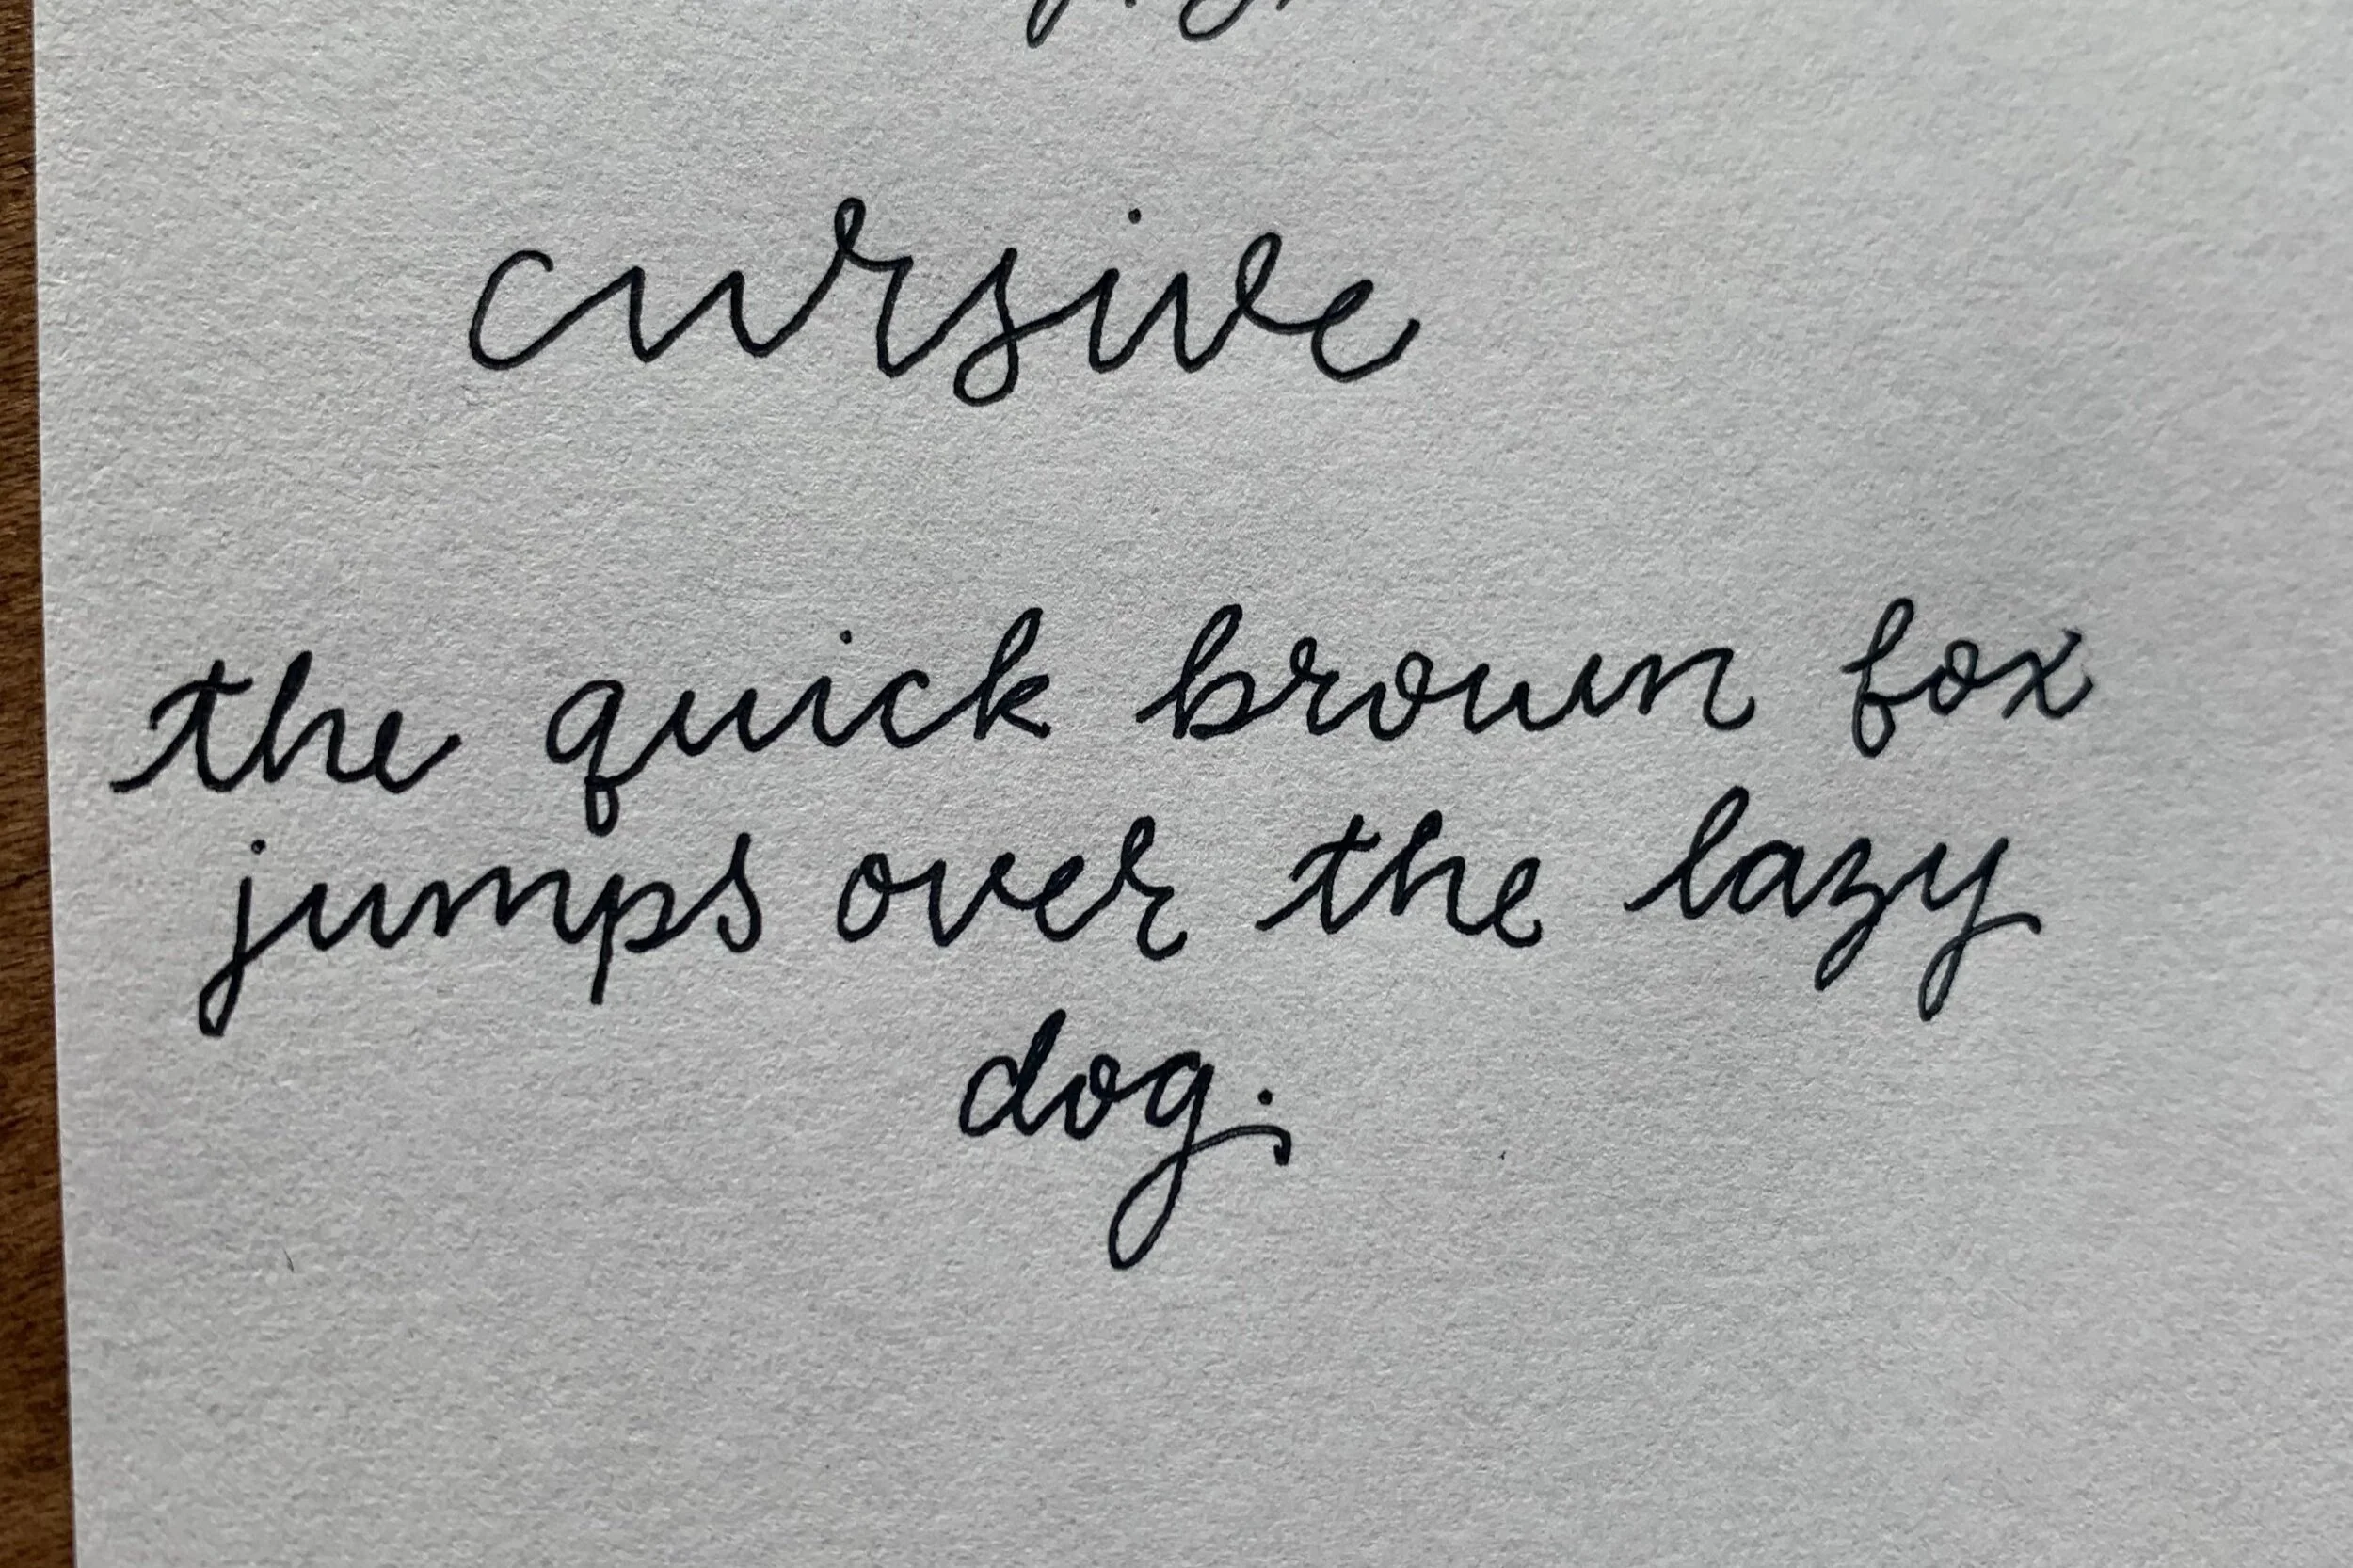 cursive
the quick brown fox
jumps over the lazy
dog.